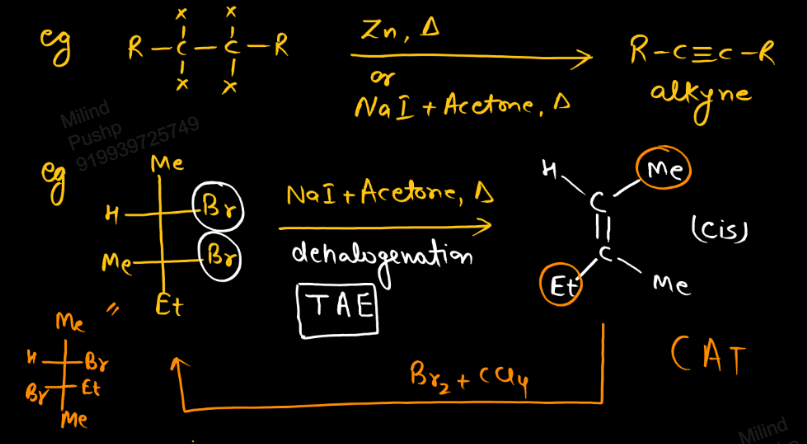 eg
X X
R-C-C-R
X X
Zn, Δ
or
NaI + Acetone, Δ
R-C≡C-R
alkyne
Milind
Pushp
919939725749
eg
Me
H Br
Me Br
Et
NaI + Acetone, Δ
dehalogenation
TAE
H Me
C
||
C
Et Me
(cis)
〃
Me
H Br
Br Et
Me
Br₂ + CCl₄
CAT
Milind